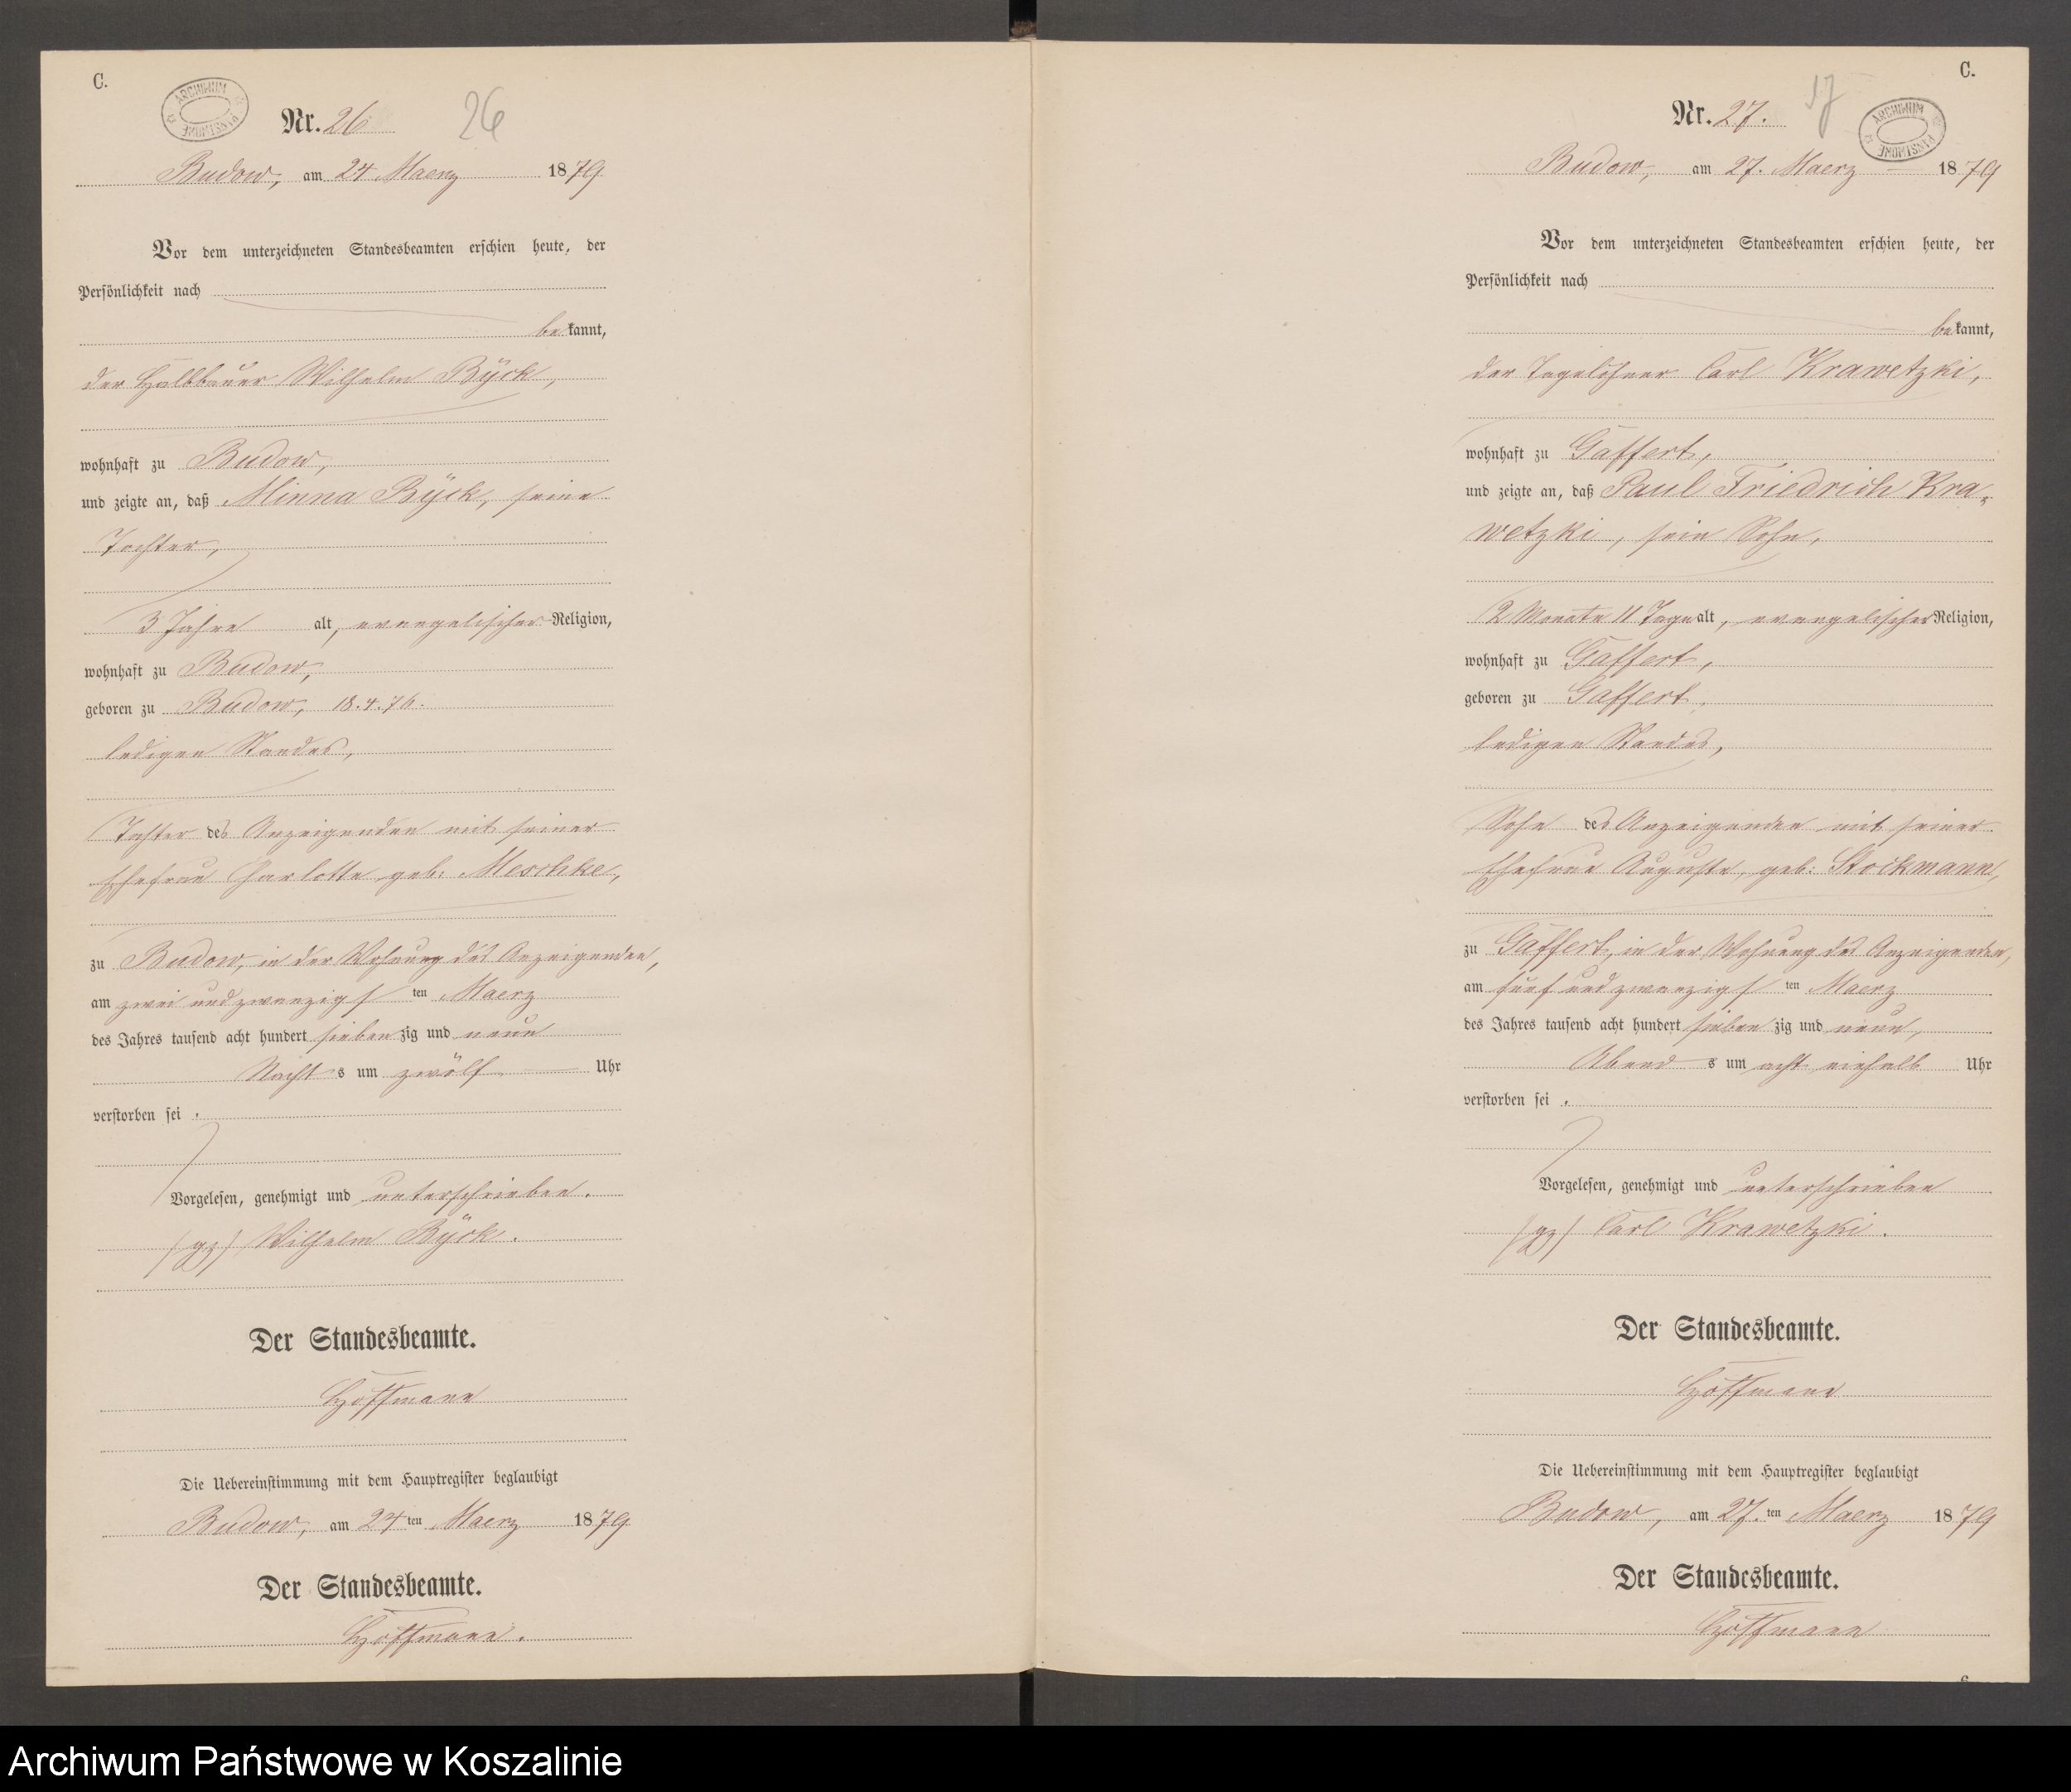 C.
ARCHIWUM PAŃSTWOWE
Nr. 26
26
Budow, am 24 Maerz 1879
Vor dem unterzeichneten Standesbeamten erschien heute, der
Persönlichkeit nach
bekannt,
der Halbbauer Wilhelm Byck,
wohnhaft zu Budow,
und zeigte an, daß Minna Byck, seine
Tochter,
3 Jahre alt, evangelischer Religion,
wohnhaft zu Budow,
geboren zu Budow, 18.4.76.
ledigen Standes,
Tochter des Anzeigenden mit seiner
Ehefrau Charlotte geb: Meschke,
zu Budow, in der Wohnung des Anzeigenden,
am zwei und zwanzigsten Maerz
des Jahres tausend acht hundert siebenzig und neun
Nachts um zwölf Uhr
verstorben sei.
Vorgelesen, genehmigt und unterschrieben.
(gz) Wilhelm Byck.
Der Standesbeamte.
Hoffmann
Die Uebereinstimmung mit dem Hauptregister beglaubigt
Budow, am 24ten Maerz 1879
Der Standesbeamte.
Hoffmann.
C.
ARCHIWUM PAŃSTWOWE
Nr. 27.
Budow, am 27. Maerz 1879
Vor dem unterzeichneten Standesbeamten erschien heute, der
Persönlichkeit nach
bekannt,
der Tagelöhner Carl Krawetzki,
wohnhaft zu Gaffert,
und zeigte an, daß Paul Friedrich Kra-
wetzki, sein Sohn,
2 Monate 11 Tage alt, evangelischer Religion,
wohnhaft zu Gaffert,
geboren zu Gaffert,
ledigen Standes,
Sohn des Anzeigenden mit seiner
Ehefrau Auguste, geb: Stockmann,
zu Gaffert, in der Wohnung des Anzeigenden,
am fünf und zwanzigsten Maerz
des Jahres tausend acht hundert siebenzig und neun,
Abends um acht einhalb Uhr
verstorben sei.
Vorgelesen, genehmigt und unterschrieben
(gz) Carl Krawetzki.
Der Standesbeamte.
Hoffmann
Die Uebereinstimmung mit dem Hauptregister beglaubigt
Budow, am 27.ten Maerz 1879
Der Standesbeamte.
Hoffmann
Archiwum Państwowe w Koszalinie